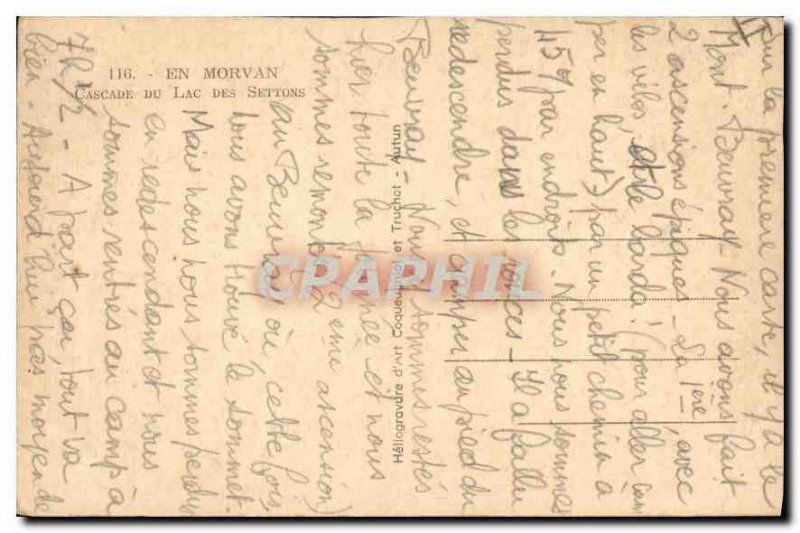 II
Sur la première carte, il y a le
Mont-Beuvray - Nous avons fait
2 ascensions épiques - La 1ère, avec
les vélos et le barda ! (pour aller camper
en haut) par un petit chemin à
45% par endroits. Nous nous sommes
perdus dans les ronces - Il a fallu
redescendre, et camper au pied du
Beuvray - Nous sommes restés
hier toute la journée et nous
sommes remontés (2ème ascension)
au Beuvray où cette fois,
nous avons trouvé le sommet.
Mais nous nous sommes perdus
en redescendant et nous
sommes rentrés au camp à
7h 1/2 - A part ça, tout va
bien. Aujourd'hui pas moyen de
116. - EN MORVAN
CASCADE DU LAC DES SETTONS
Héliogravure d'Art Coqueugniot et Truchot - Autun
CPAPHIL